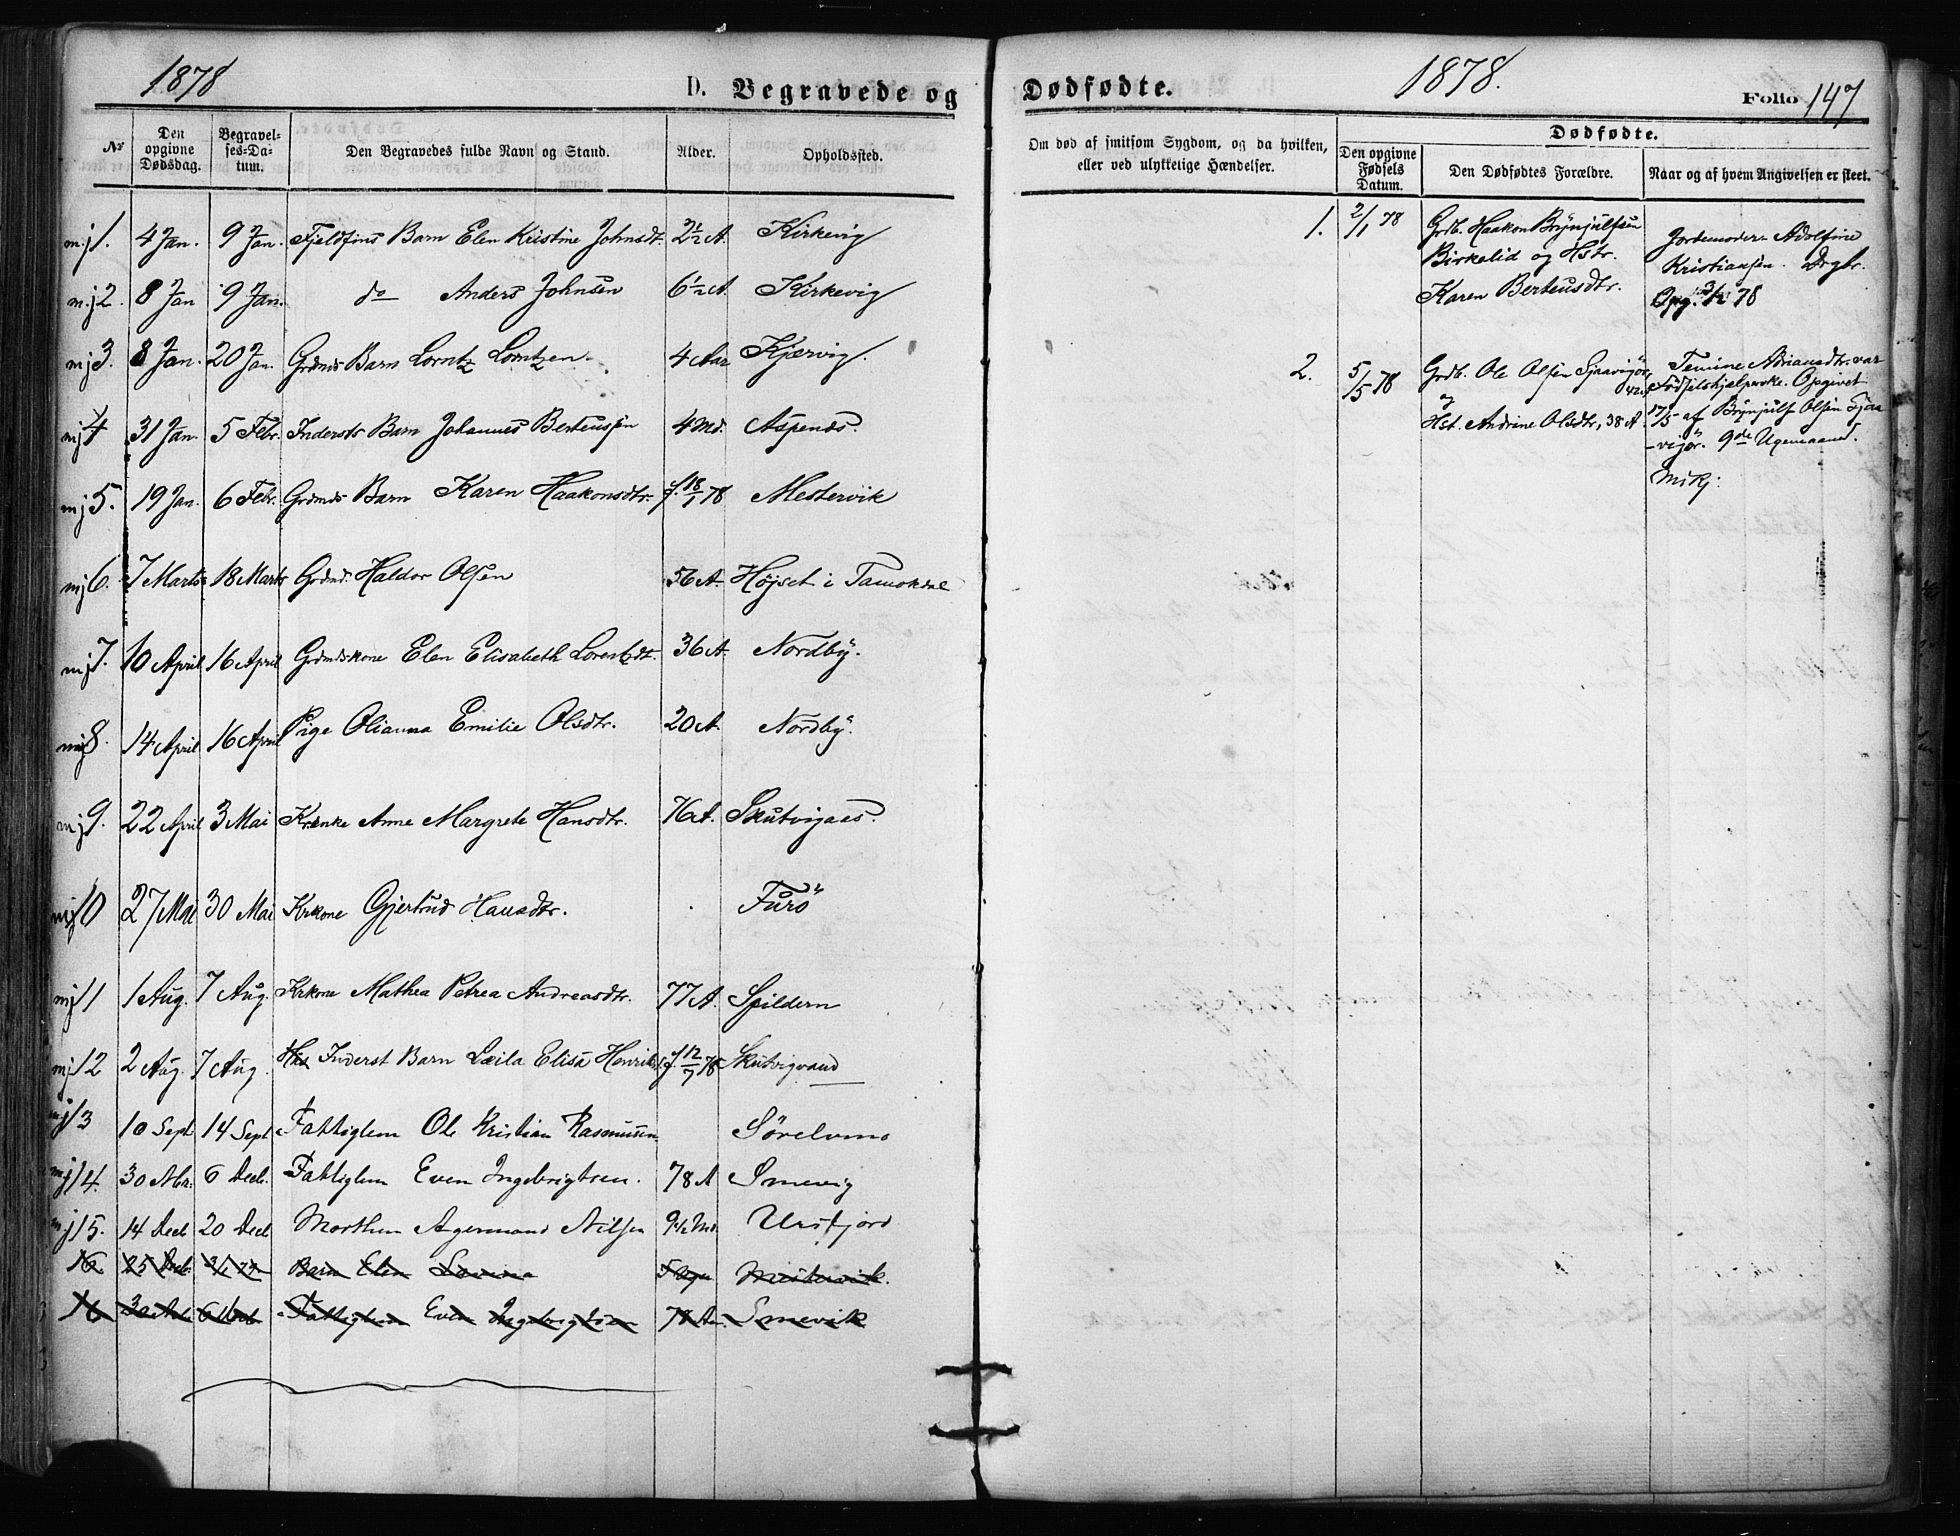 1878
D. Begravede og
№
Den opgivne Dødsdag.
Begravelses-Datum.
Den Begravedes fulde Navn og Stand.
Alder.
Opholdssted.
mj 1. 4 Jan. 9 Jan. Fjeldfins Barn Elen Kristine Johnsdt. 2½ A. Kirkevig
mj 2. 8 Jan 9 Jan. do Anders Johnsen 6½ A. Kirkevig
mj 3. 8 Jan. 20 Jan. Grdmds Barn Lorntz Lorntzen. 4 Aar Kjervig.
mj 4 31 Jan. 5 Febr. Inderstr Barn Johannes Berteussen 4 Md. Aspenæs.
mj 5. 19 Jan. 6 Febr. Grdmds Barn Karen Haakonsdtr. f. 18/1 78 Mestervik
mj 6. 7 Marts 18 Marts Grdmd. Haldor Olsen 56 A. Højset i Tamokdal
mj 7. 10 April 16 April Grdmdskone Elen Elisabeth Lorentzdt. 36 A. Nordby.
mj 8. 14 April 16 April Pige Olianna Emilie Olsdtr. 20 A. Nordby.
mj 9. 22 April 3 Mai Krenke Anne Margrete Hansdtr. 76 A. Skutvigaas.
mj 10 27 Mai 30 Mai Krkone Gjertrud Hansdtr. Furö
mj 11 1 Aug. 7 Aug. Krkone Mathea Petrea Andreasdtr. 77 A. Spildern
mj 12 2 Aug. 7 Aug. Inderst Barn Læila Elisa Henriks f. 12/7 78 Skutvigvand
mj 13 10 Sept 14 Sept Fattiglem Ole Kristian Rasmussen Sörelvmo
mj 14. 30 Nbr. 6 Decb. Fattiglem Even Ingebrigtsen. 78 A Smevig
mj 15. 14 Decb 20 Decb Morthen Agermand Nilsen 9½ Md. Ursfjord
16. 25 Decb. 3/1 79. Barn Elen 5 Mestervik.
16 30 Nbr 6 Decb Fattiglem Even Ingebrigtsen 78 A. Smevik
Dødfødte.
1878.
Folio 147
Om død af smitsom Sygdom, og da hvilken,
eller ved ulykkelige Hændelser.
Dødfødte.
Den opgivne Fødsels Datum.
Den Dødfødtes Forældre.
Naar og af hvem Angivelsen er skeet.
1. 2/1 78 Grdb. Haakon Brynjulfsen
Birkelid og Hstr.
Karen Berteusdtr.
Jordemoder Adolfine
Kristiansen. Drgbr.
Opg. 3/2 78
2. 5/5 78 Grdb. Ole Olsen Sjaavigör, 42 A
og
Hst. Andrine Olsdtr, 38 A.
Temine Adriansdtr. var
Födselshjelperske. Opgivet
17/5 af Brynjulf Olsen Sjaa
-vigör. 9de Ugemaaned.
Mikj: